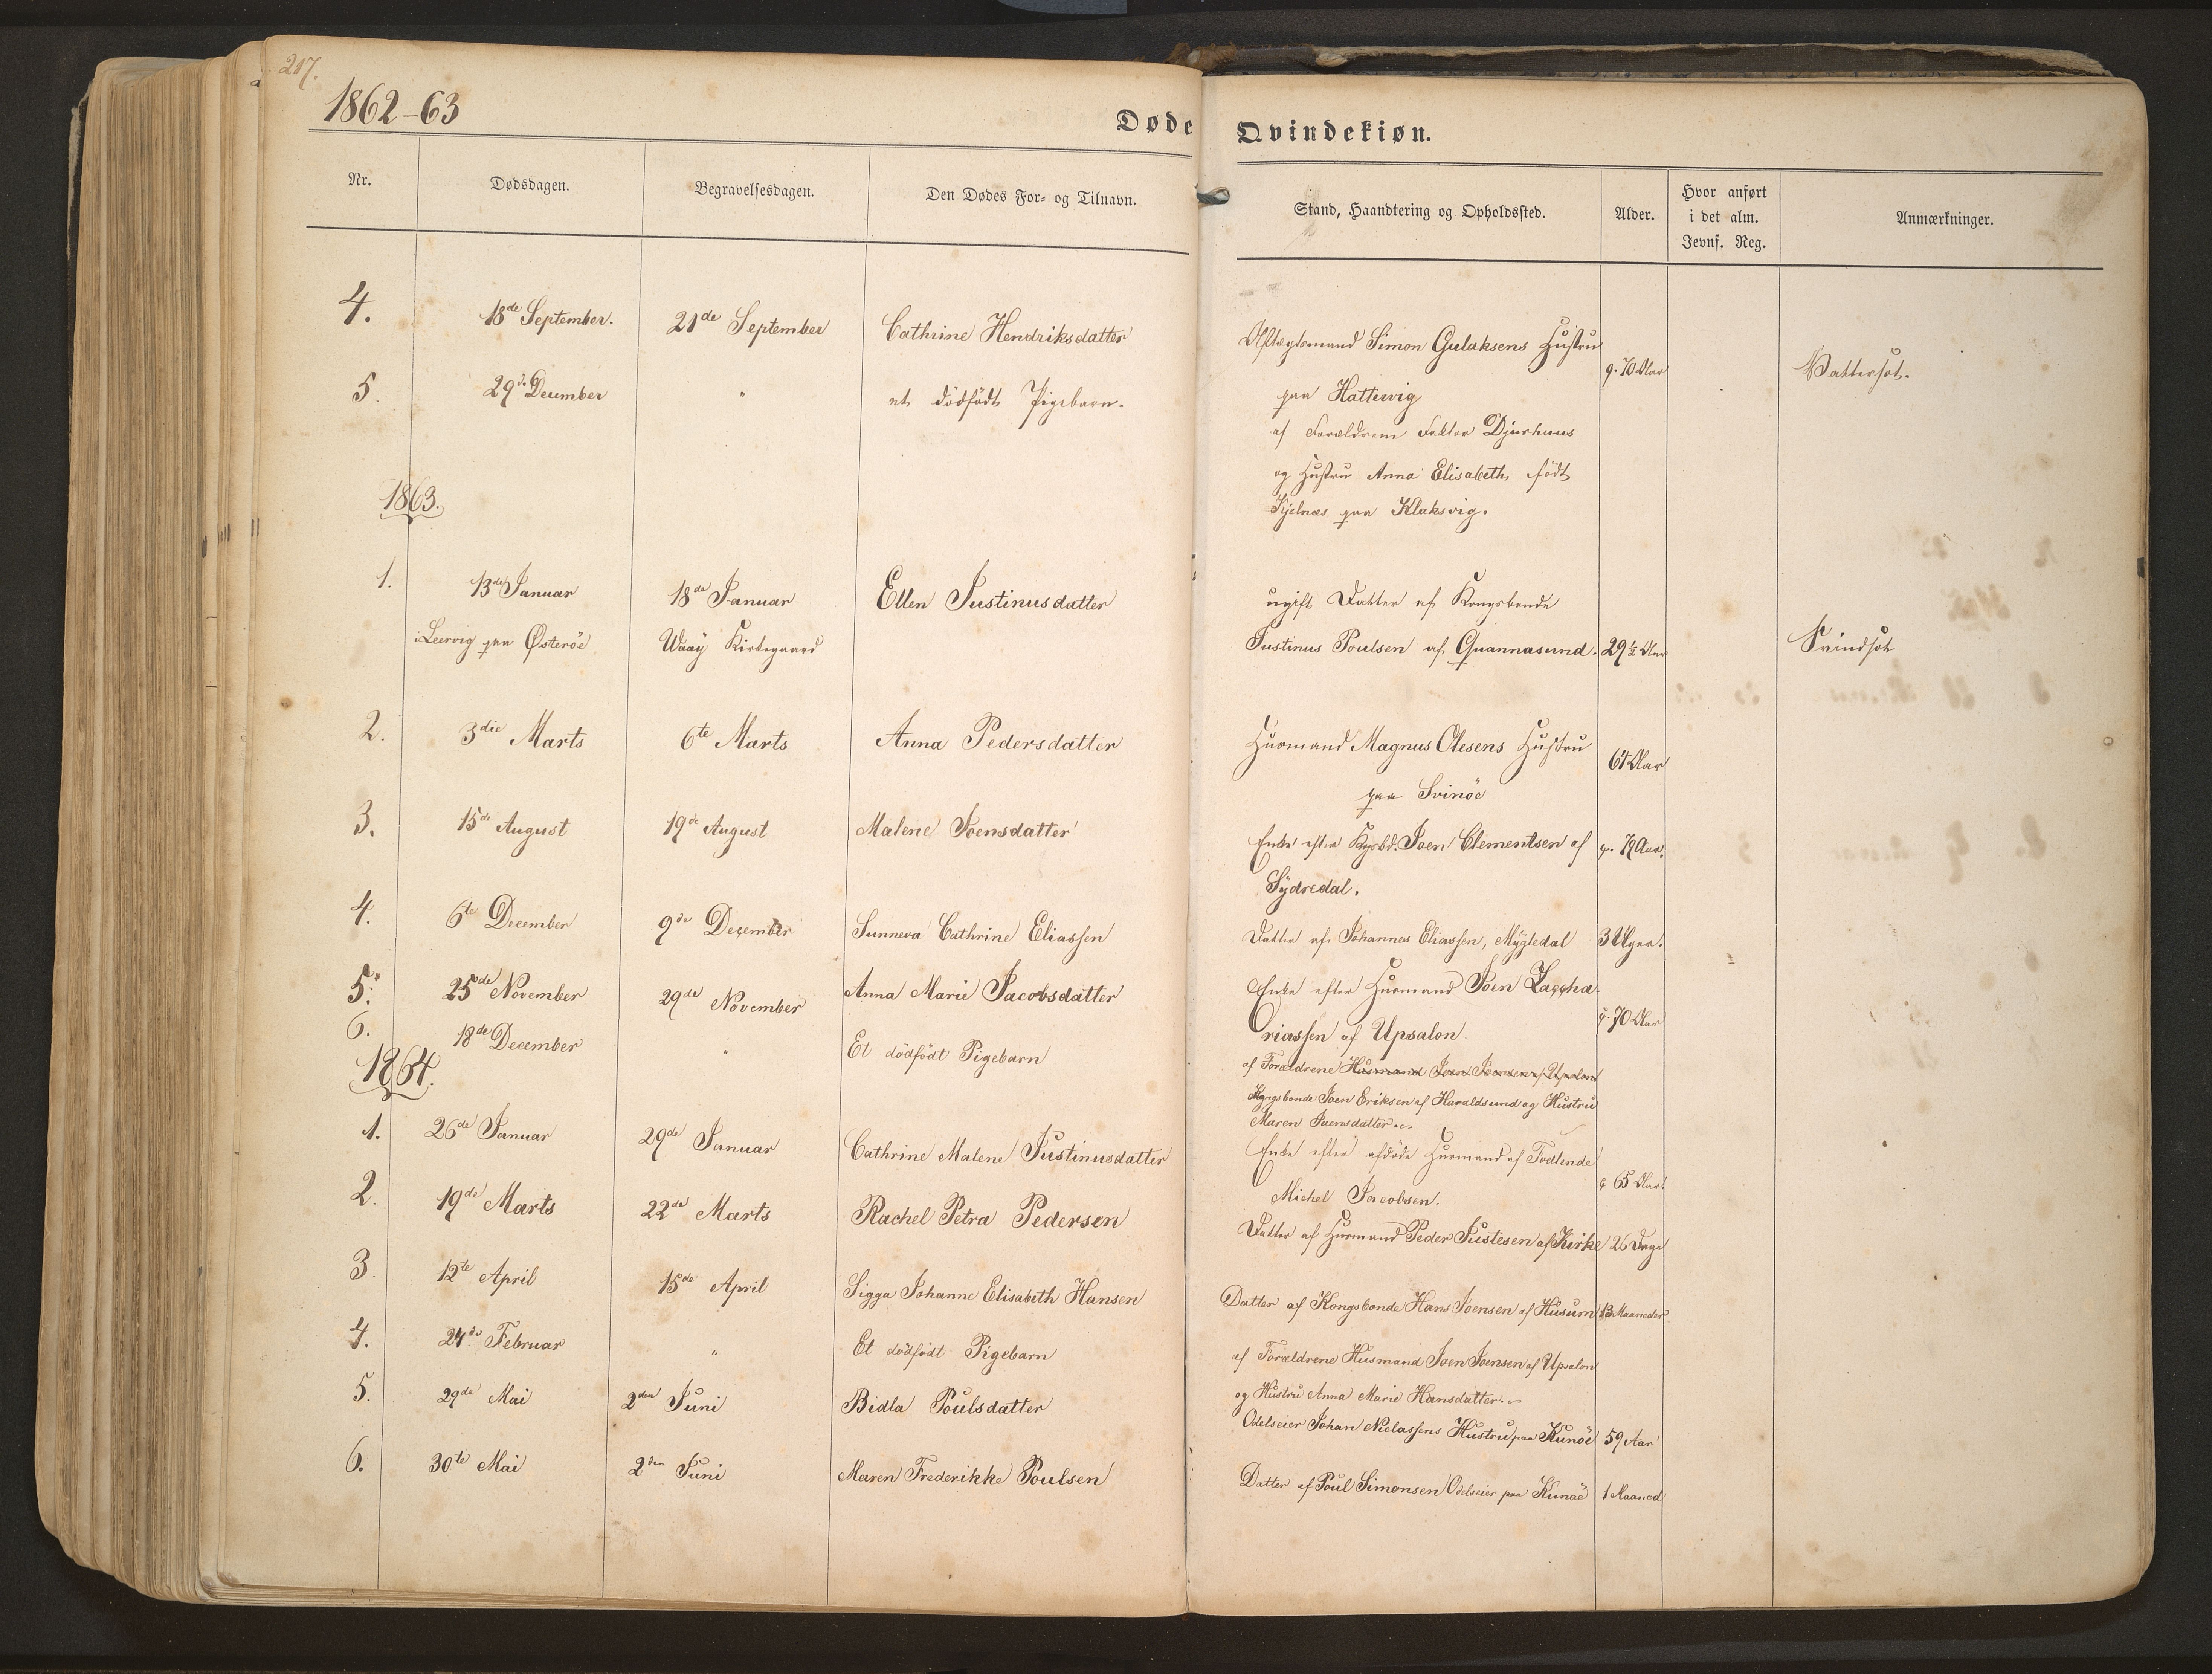 217.
1862-63
Døde Qvindekiøn.
Nr. Dødsdagen. Begravelsesdagen. Den Dødes For- og Tilnavn. Stand, Haandtering og Opholdssted. Alder. Hvor anført i det alm. Jevnf. Reg. Anmærkninger.
4. 18de September. 21de September Cathrine Hendriksdatter Aftægtsmand Simon Gulaksens Hustru
paa Hattervig 70 Aar Vattersot.
5. 29de December " et dödfödt Pigebarn. af Forældrene Faktor Djurhuus
og Hustru Anna Elisabeth födt
Kjelnæs paa Klaksvig.
1863.
1. 13de Januar 18de Januar Ellen Justinusdatter ugift Datter af Kongsbonde
i Leervig paa Østerøe Waaÿ Kirkegaard Justinus Poulsen af Quannasund. 29½ Aar Svindsot
2. 3die Marts 6te Marts Anna Pedersdatter Husmand Magnus Olesens Hustru
paa Svinöe 64 Aar
3. 15de August 19de August Malene Joensdatter Enke efter Kgsbd. Joen Clementsen af
Sÿdredal. 79 Aar.
4. 6te December 9de December Sunneva Cathrine Eliassen Datter af Johannes Eliassen, Mÿgledal 3 Uger.
5. 25de November 29de November Anna Marie Jacobsdatter Enke efter Husmand Joen Zaccha-
riassen af Upsalon 70 Aar
6. 18de December " Et dödfödt Pigebarn af Forældrene Husmand Joen Joensen af Upsalon
Kongsbonde Joen Eriksen af Haraldsund og Hustru
Maren Joensdatter.
1864.
1. 26de Januar 29de Januar Cathrine Malene Justinusdatter Enke efter afdöde Husmand af Todlende
Michel Jacobsen. 65 Aar.
2. 19de Marts 22de Marts Rachel Petra Pedersen Datter af Husmand Peder Justesen af Kirke 26 Dage
3 12te April 15de April Sigga Johanne Elisabeth Hansen Datter af Kongsbonde Hans Joensen af Husum 13 Maaneder
4. 24de Februar " Et dödfödt Pigebarn af Forældrene Husmand Joen Joensen af Upsalon
og Hustru Anna Marie Hansdatter.
5. 29de Mai 2den Juni Bidla Poulsdatter Odelseier Johan Niclassens Hustru paa Kunöe 59 Aar
6. 30te Mai 2den Juni Maren Frederikke Poulsen Datter af Poul Simonsen Odelseier paa Kunöe 1 Maaned